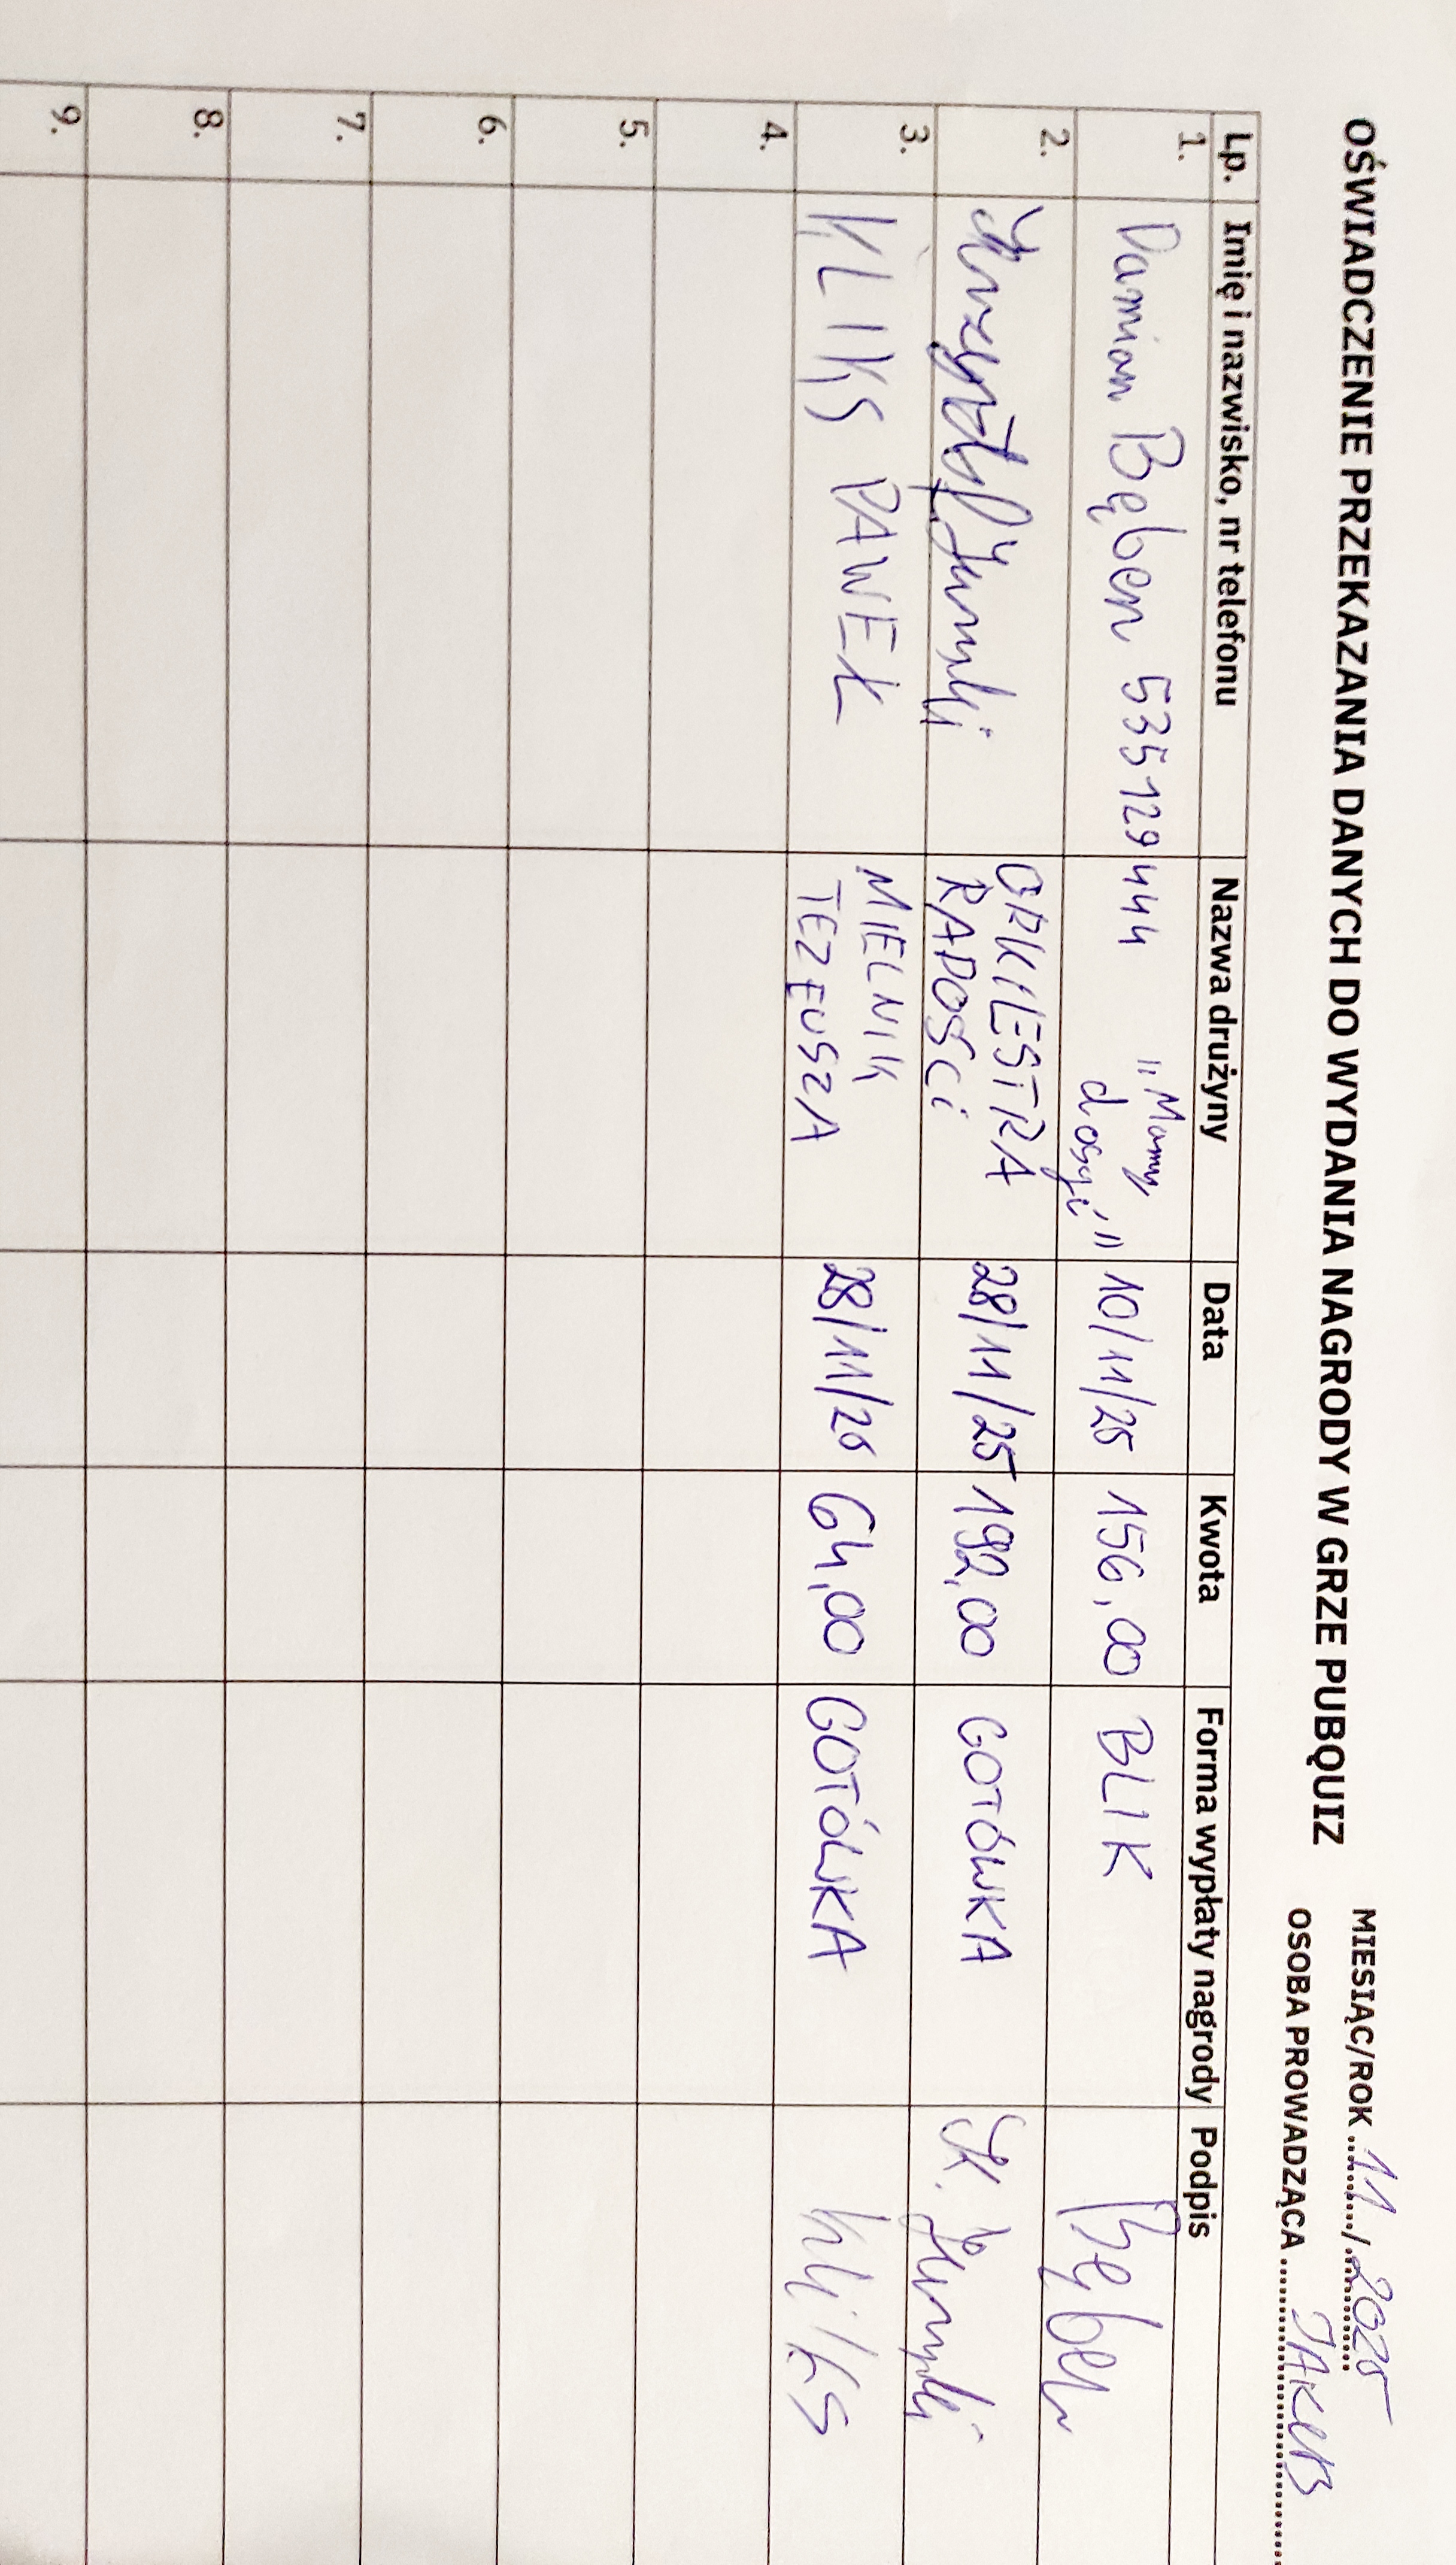 OŚWIADCZENIE PRZEKAZANIA DANYCH DO WYDANIA NAGRODY W GRZE PUBQUIZ
MIESIĄC/ROK 11 / 2025
OSOBA PROWADZĄCA JAKUB
Lp. Imię i nazwisko, nr telefonu Nazwa drużyny Data Kwota Forma wypłaty nagrody Podpis
1. Damian Bęben 535129444 "Mamy dosyć" 10/11/25 156,00 BLIK Bęben
2. Krzysztof ORKIESTRA RADOŚCI 28/11/25 192,00 GOTÓWKA K.
3. KLIKS PAWEŁ MIELNIK TEZEUSZA 28/11/25 64,00 GOTÓWKA Kliks
4.
5.
6.
7.
8.
9.